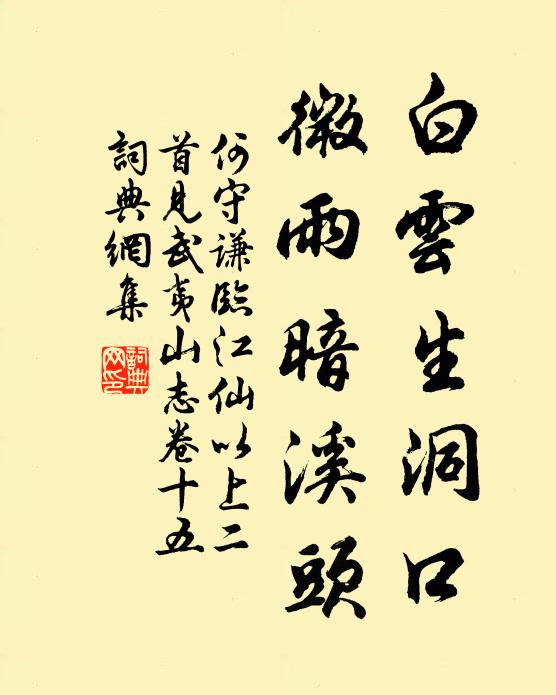 白雲生洞口
微雨暗溪頭
何守謙臨江仙以上二
首見武夷山志卷十五
詞典網集
詞典網印